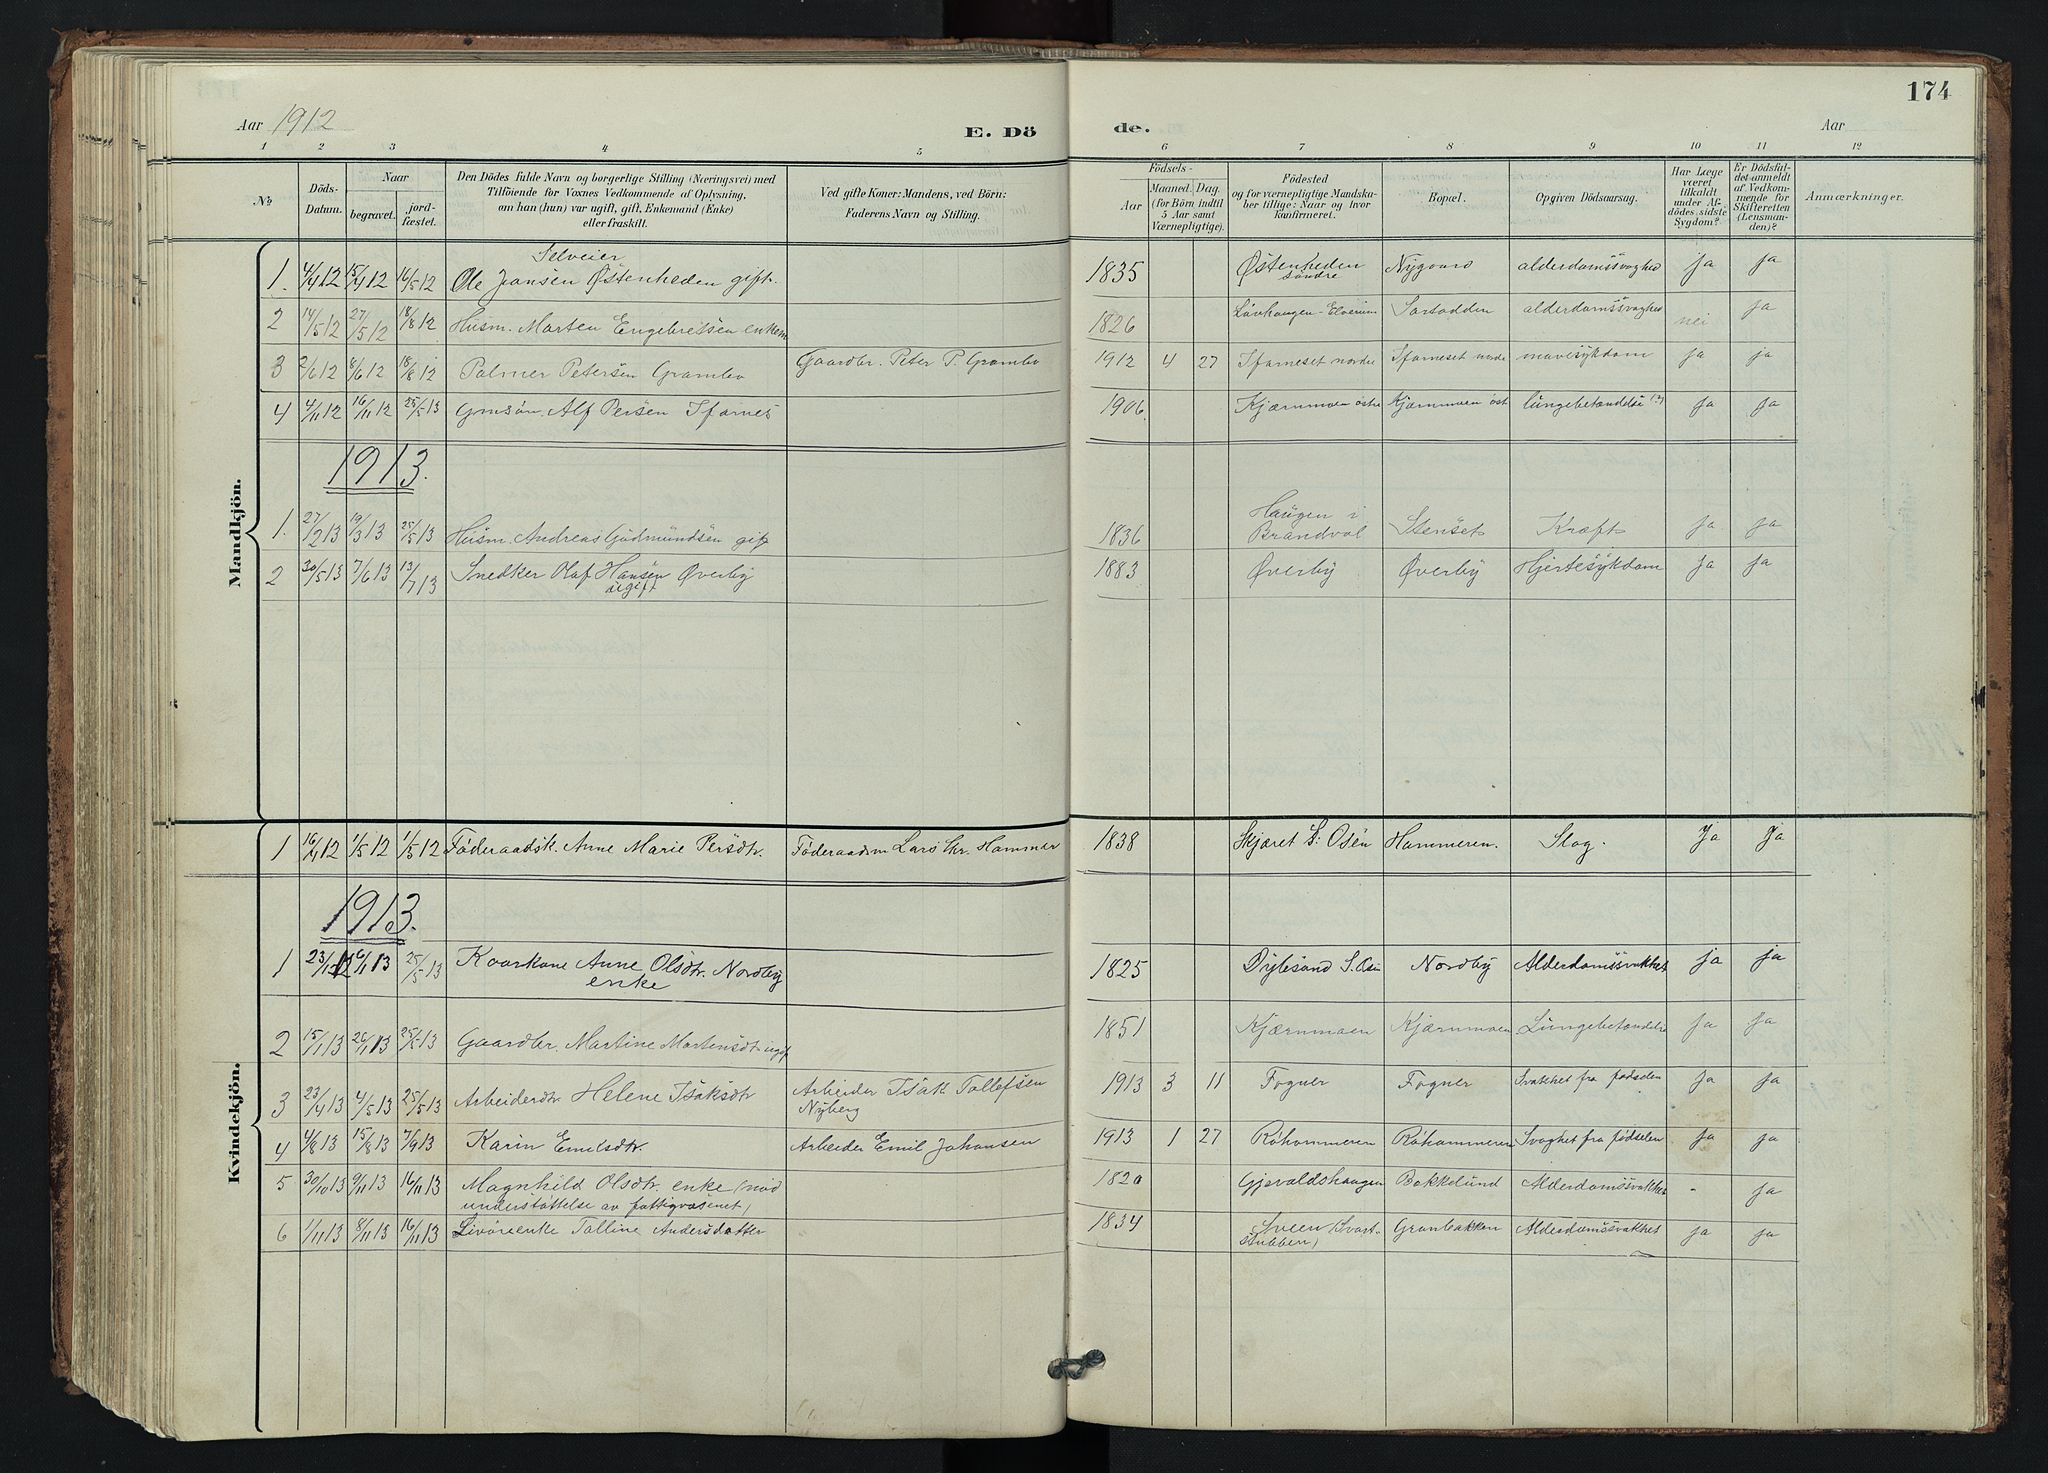 174
Aar 1912
E. Dö
de.
Aar
1 2 3 4 5 6 7 8 9 10 11 12
No
Döds-Datum.
Naar
begravet.
jord-fæstet.
Den Dödes fulde Navn og borgerlige Stilling (Næringsvei) med
Tilföiende for Voxnes Vedkommende af Oplysning,
om han (hun) var ugift, gift, Enkemand (Enke)
eller fraskilt.
Ved gifte Koner: Mandens, ved Börn:
Faderens Navn og Stilling.
Födsels-
Aar
Maaned. Dag.
(for Börn indtil
5 Aar samt
Værnepligtige).
Födested
og for værnepligtige Mandska-
ber tillige: Naar og hvor
konfirmeret.
Bopæl.
Opgiven Dödsaarsag.
Har Læge
været
tilkaldt
under Af-
dödes sidste
Sygdom?
Er Dödsfal-
det anmeldt
af Vedkom-
mende for
Skifteretten
(Lensman-
den)?
Anmærkninger.
Mandkjön.
Selveier
1. 4/4 12 15/4 12 16/5 12 Ole Jansen Østenheden gift. 1835 Østenheden søndre Nygaard alderdomssvaghed Ja Ja
2 14/5 12 27/5 12 18/8 12 Husm. Morten Engebretsen enkem 1826 Løvhaugen - Elverum alderdomssvaghed nei Ja
3 2/6 12 8/6 12 18/8 12 Palmer Petersen Grambo Gaardbr. Peter P. Grambo 1912 4 27 Ifarneset nordre Ifarneset nordre mavesykdom ja ja
4 4/11 12 16/11 12 25/5 13 Gmsøn. Alf Persen Ifarnes 1906 Kjærnmoen østre Kjærnmoen øst lungebetændelse (?) Ja Ja
1913.
1. 27/2 13 19/3 13 25/5 13 Husm. Andreas Gudmundsen gift 1836 Haugen i Brandval Stenset Kræft Ja Ja
2 30/5 13 7/6 13 13/7 13 Snedker Olaf Hansen Øverby ugift 1883 Øverby Øverby Hjertesykdom Ja Ja
Kvindekjön.
1 16/4 12 1/5 12 1/5 12 Føderaadsk. Anne Marie Persdtr. Føderaadsm Lars Chr. Hammer 1838 Skjæret S. Osen Hammeren. Slag. Ja Ja
1913.
1 23/12 12 6/1 13 25/5 13 Kaarkone Anne Olsdtr. Nordby enke 1825 S. Osen Nordby Alderdomssvakhet ja ja
2 15/1 13 26/1 13 25/5 13 Gaardbr. Martine Martensdtr ugift 1851 Kjærnmoen Kjærnmoen Lungebetændelse Ja Ja
3 23/4 13 4/5 13 25/5 13 Arbeiderdtr. Helene Isaksdtr Arbeider Isak Tollefsen Nyberg 1913 3 11 Fogner Fogner Svakhet fra fødselen Ja Ja
4 4/8 13 15/8 13 7/9 13 Karin Emilsdtr. Arbeider Emil Johansen 1913 1 27 Røhammeren Røhammeren Svaghet fra fødselen Ja Ja
5 30/10 13 9/11 13 16/11 13 Magnhild Olsdtr. enke (nød understøttelse av fattigvæsenet) 1820 Gjevaldshaugen Bakkelund Alderdomssvakhet - Ja
6 1/11 13 8/11 13 16/11 13 Livøreenke Talline Andersdatter 1834 Sveen (Svartstubben) Granbakken Alderdomssvakhet Ja Ja